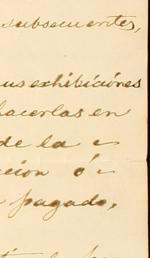 subsecuentes,
us exhibiciónes
hacerlas en
de la
cion ó
pagado,